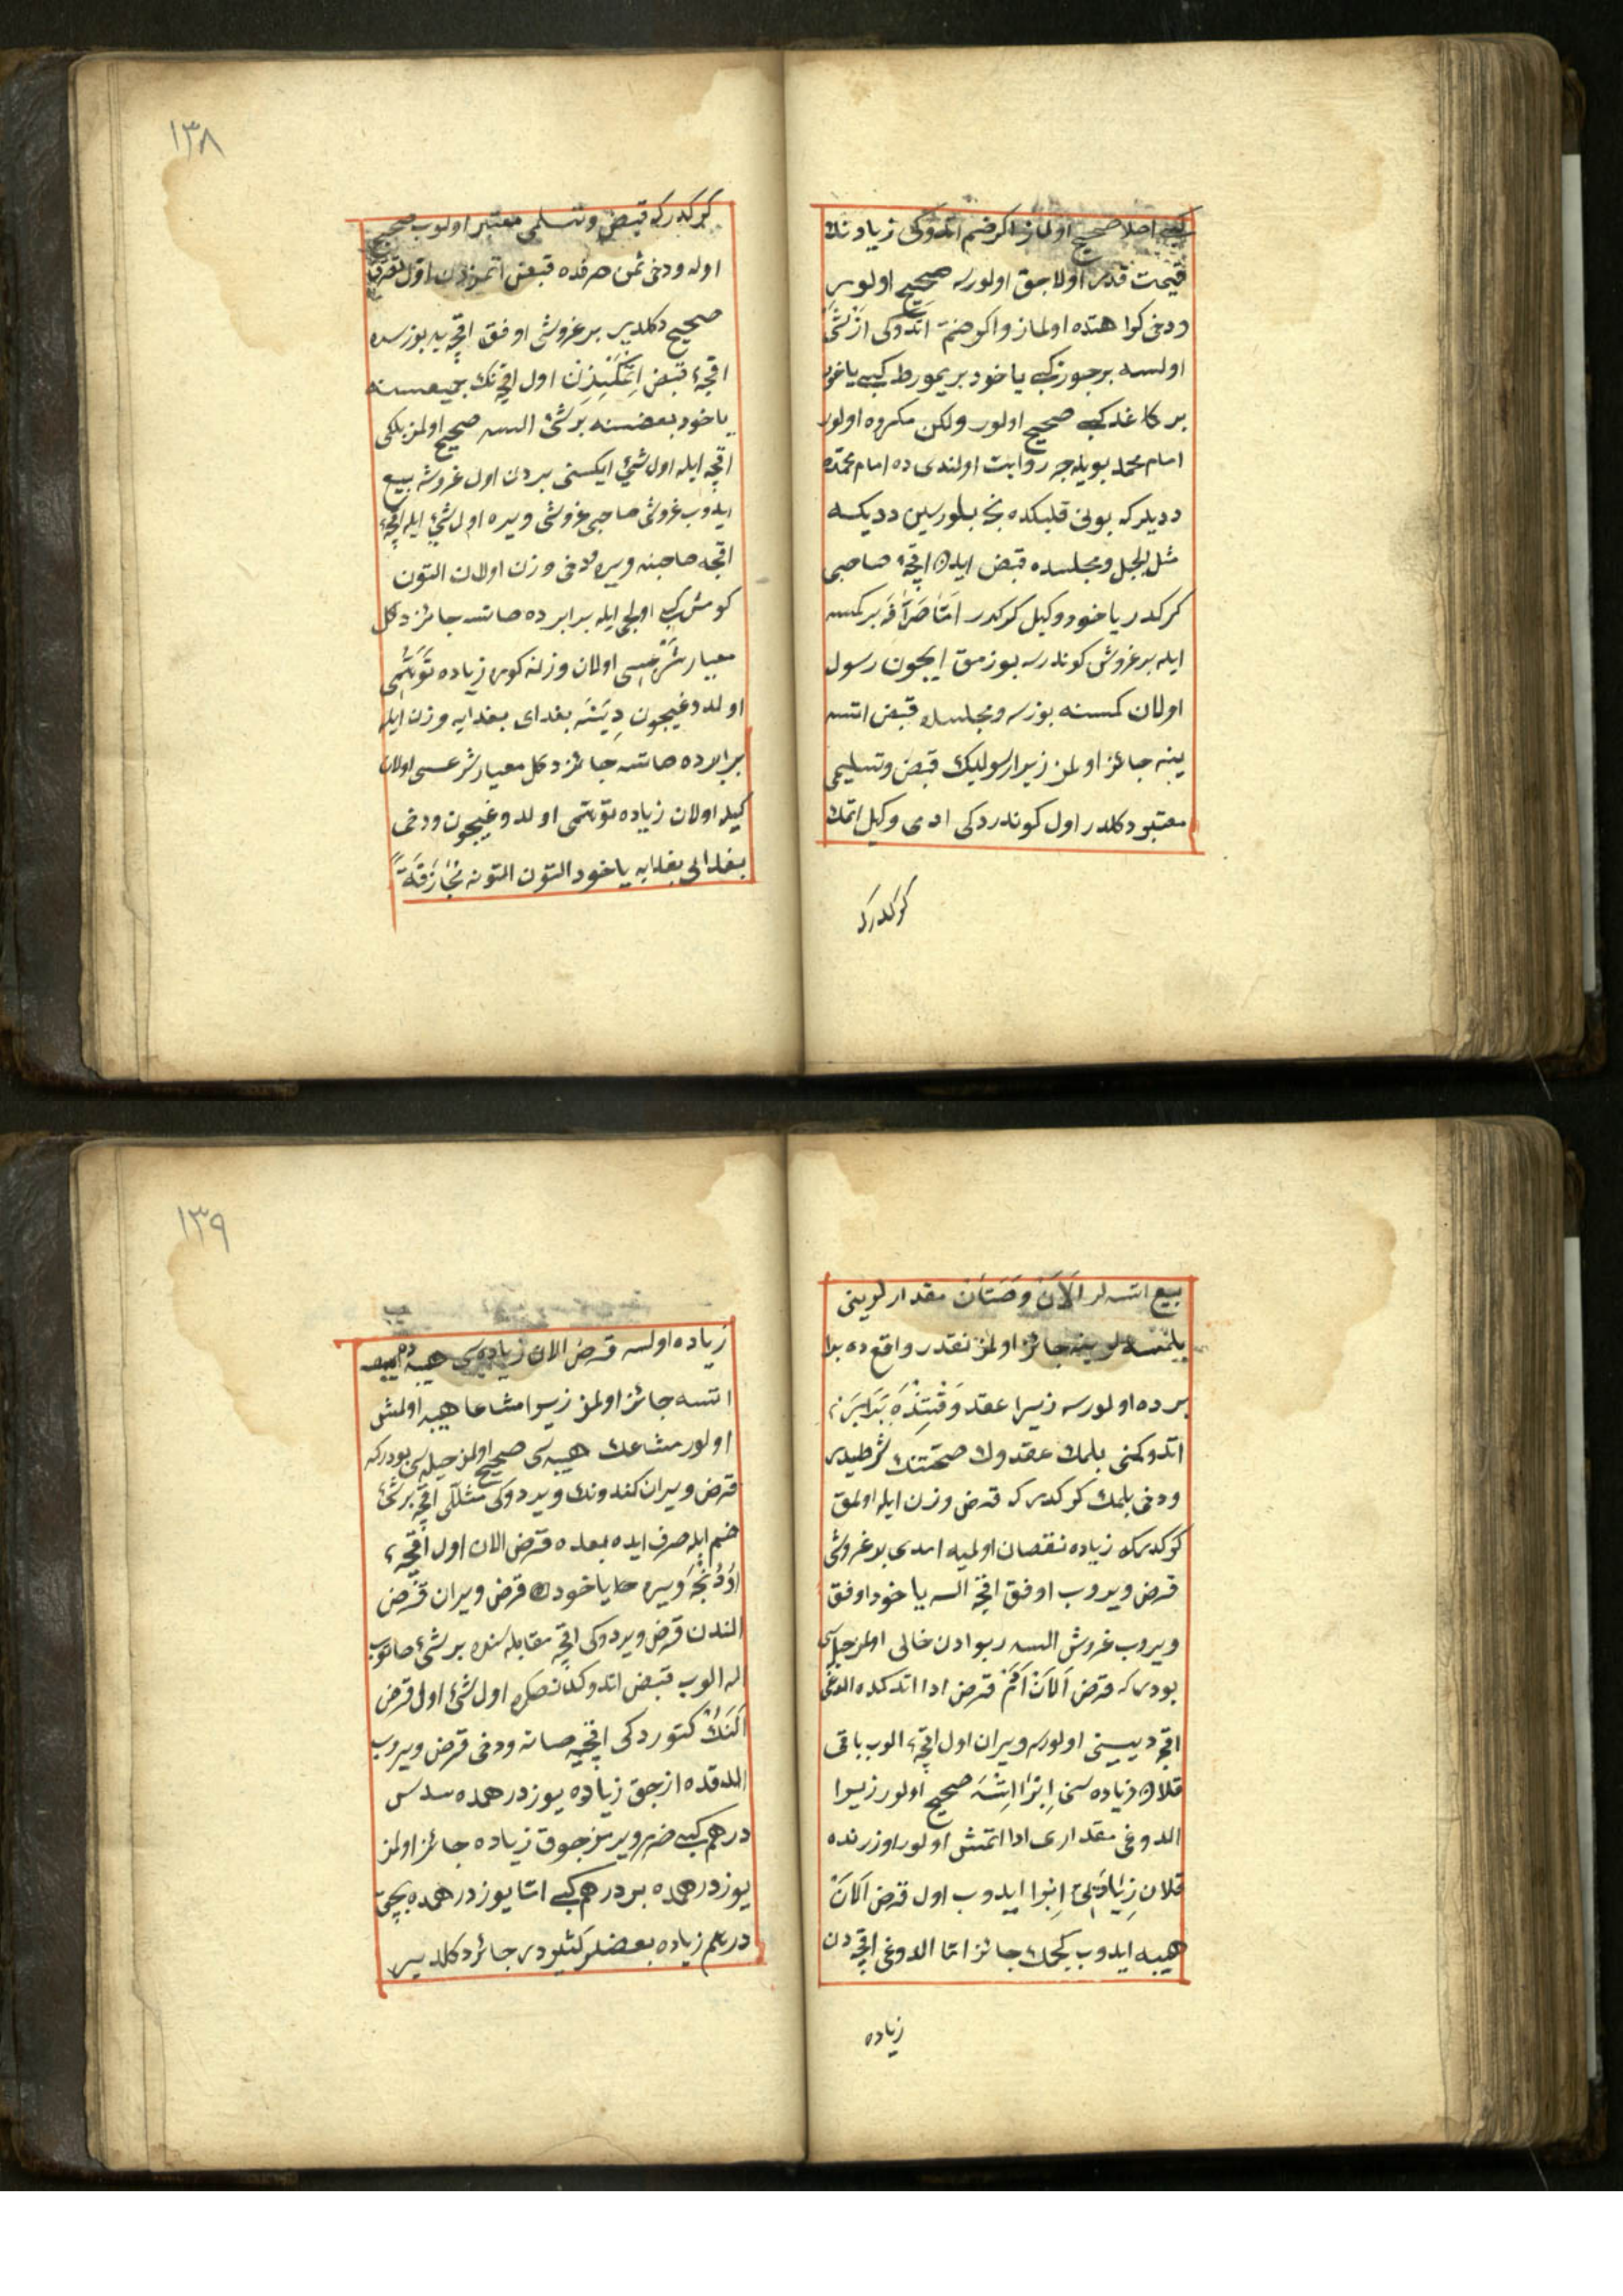 كبى اصلا صحيح اولماز اكر ضم اتدوكى زيادنك
قيمت قدر اولاجق اولورسه صحيح اولور
ودخى كراهتده اولماز واكر ضم اتدوكى از شئ
اولسه بر جوز كبى ياخود بر يمورطه كبى ياخود
بر كاغد كبى صحيح اولور ولكن مكروه اولور
امام محمد بويله جه روايت اولندى ده امام محمده
دديلر كه بونى قلبكده نجه بلورسين دديكه
مثل الجبل ومجلسده قبض ايدن اقچه صاحبى
كركدر ياخود وكيل كركدر اما صرافه بر كمسه
ايله بر غروش كوندرسه بوزمق ايچون رسول
اولان كمسنه بوزسه ومجلسده قبض اتسه
ينه جائز اولمز زيرا رسوليك قبض وتسليمى
معتبر دكلدر اول كوندردكى ادمى وكيل اتمك
كركدركه
١٣٨
كركدركه قبض وتسلمى معتبر اولوب صحيح
اوله ودخى ثمن صرفده قبض اتمزدن اول تصرف
صحيح دكلدير بر غروشى اوفق اقچه يه بوزسه
اقچه ء قبض اتمكسزن اول اقچه نك جميعسنه
ياخود بعضسنه بر شئ السه صحيح اولمز بلكى
اقچه ايله اول شئ ايكسنى بردن اول غروشه بيع
ايدوب غروش صاحبى غروشى ويره اول شئ ايله اقچه ء
اقچه صاحبنه ويره ودخى وزن اولان التون
كومش كبى اولچى ايله برابرده صاتسه جائز دكل
معيار شرعيسى اولان وزنه كوره زياده توهمى
اولدوغيچون دينه بغداى بغدايه وزن ايله
برابرده صاتسه جائز دكل معيار شرعسى اولان
كيله اولان زياده توهمى اولدوغيچون ودخى
بغدايى بغدايه ياخود التون التونه مجازفة
بيع اتسه لر الان وصتان مقدارلرينى
بلمسه لر ينه جائز اولمز نقدر واقعده برا
برده اولورسه زيرا عقد وقتنده برابر
اتدوكنى بلمك عقدوك صحتنك شرطيدر
ودخى بلمك كركدر كه قرض وزن ايله اولمق
كركدركه زياده نقصان اولميه امدى بر غروشى
قرض ويروب اوفق اقچه السه ياخود اوفق
ويروب غروش السه ربوادن خالى اولمز حيله سى
بودركه قرض الان ادم قرض ادا اتدكده الدوغى
اقچه دييينى اولورسه ويران اول اقچه ء الوب باقى
قلان زياده سنى ابرا اتسه صحيح اولور زيرا
الدوغى مقدارى ادا اتمش اولور اوزرنده
قلان زياده لى ابرا ايدوب اول قرض الان
هبه ايدوب كچمك جائز اما الدوغى اقچه دن
زياده
١٣٩
زياده اولسه قرض الان زياده سى هبه
اتسه جائز اولمز زيرا مشاعا هبه اولمش
اولور مشاعك هبه سى صحيح اولمز حيله سى بودركه
قرض ويران كندونك ويردوكى مثللى اقچه بر شئ
ضم ايله صرف ايده بعده قرض الان اول اقچه ء
اودنجه ويره حا ياخود قرض ويران قرض
الندن قرض ويردوكى اقچه مقابله سنده بر شئ صاتوب
اله الوب قبض اتدوكدنصكره اول شئ اول قرض
النك كتوردكى اقچيه صاته ودخى قرض ويروب
الدقده ازجق زياده يوز درهمده سدس
درهم كبى ضرر ويرمز چوق زياده جائز اولمز
يوز درهمده بر درهم كبى اما يوز درهمده بچق
درهم زياده بعضلر كتلودر جائز دكلدير